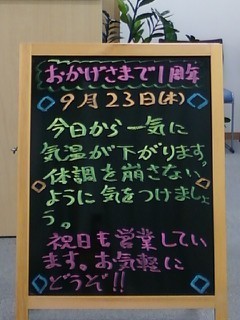 おかげさまで1周年
9月23日(木)
今日から一気に
気温が下がります。
体調を崩さない
ように気をつけましょ
う。
祝日も営業してい
ます。お気軽に
どうぞ!!